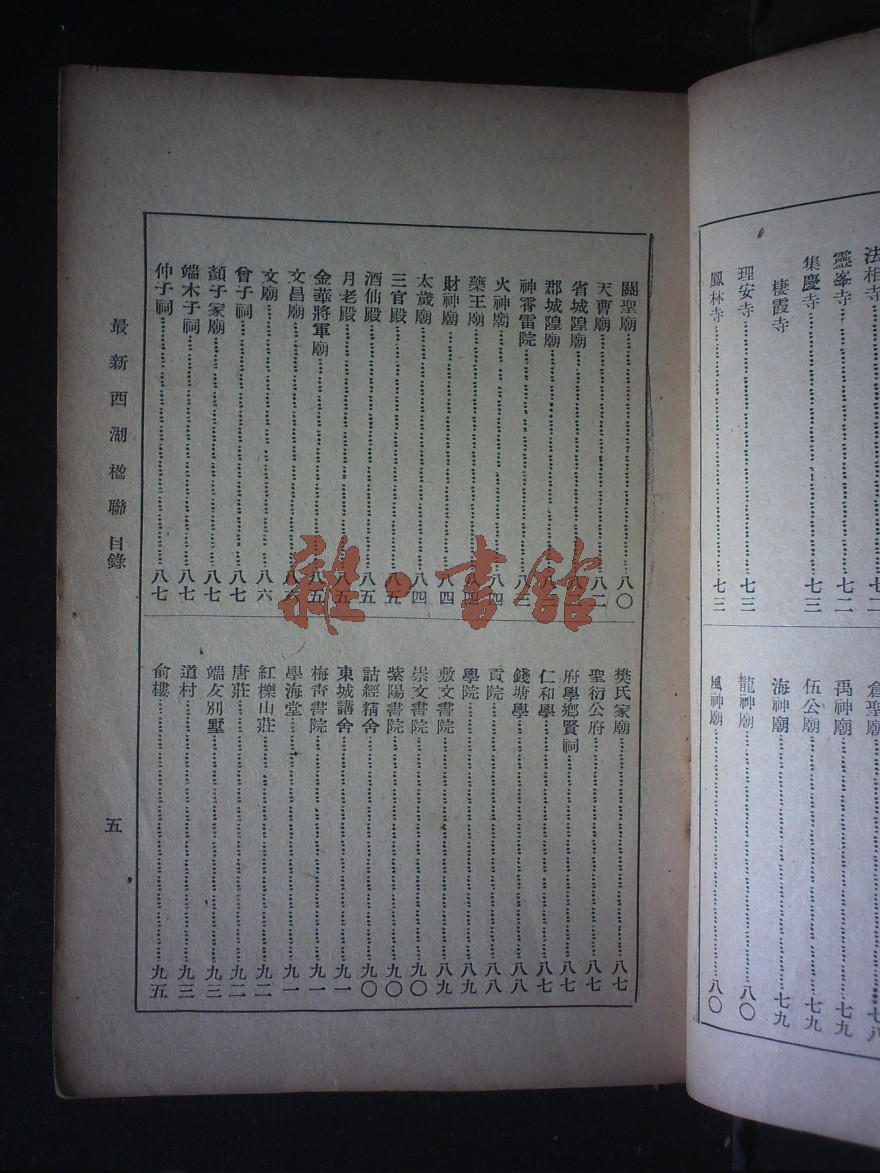 法相寺
靈峯寺……七二
集慶寺……七三
棲霞寺
理安寺……七三
鳳林寺……七三
倉聖廟……七八
禹神廟……七九
伍公廟……七九
海神廟……七九
龍神廟……八〇
風神廟……八〇
關聖廟……八〇
天曹廟……八二
省城隍廟
郡城隍廟
神霄雷院……八三
火神廟……八四
藥王廟……八四
財神廟……八四
太歲廟……八四
三官殿……八五
酒仙殿……八五
月老殿……八五
金華將軍廟……八五
文昌廟……八六
文廟……八六
曾子祠……八七
顏子家廟……八七
端木子祠……八七
仲子祠……八七
樊氏家廟……八七
聖衍公府……八七
府學鄉賢祠……八七
仁和學……八七
錢塘學……八八
貢院……八八
學院……八九
敷文書院……八九
崇文書院……九〇
紫陽書院……九〇
詁經精舍……九〇
東城講舍……九一
梅青書院……九一
學海堂……九一
紅櫟山莊……九二
唐莊……九二
端友別墅……九三
道村……九三
俞樓……九五
最新西湖楹聯 目錄
五
雜·書館